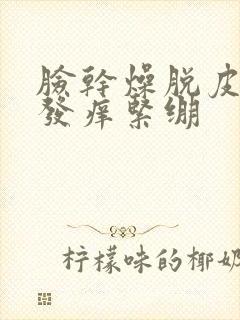 臉幹燥脫皮
發癢緊綳
柠檬味的椰奶